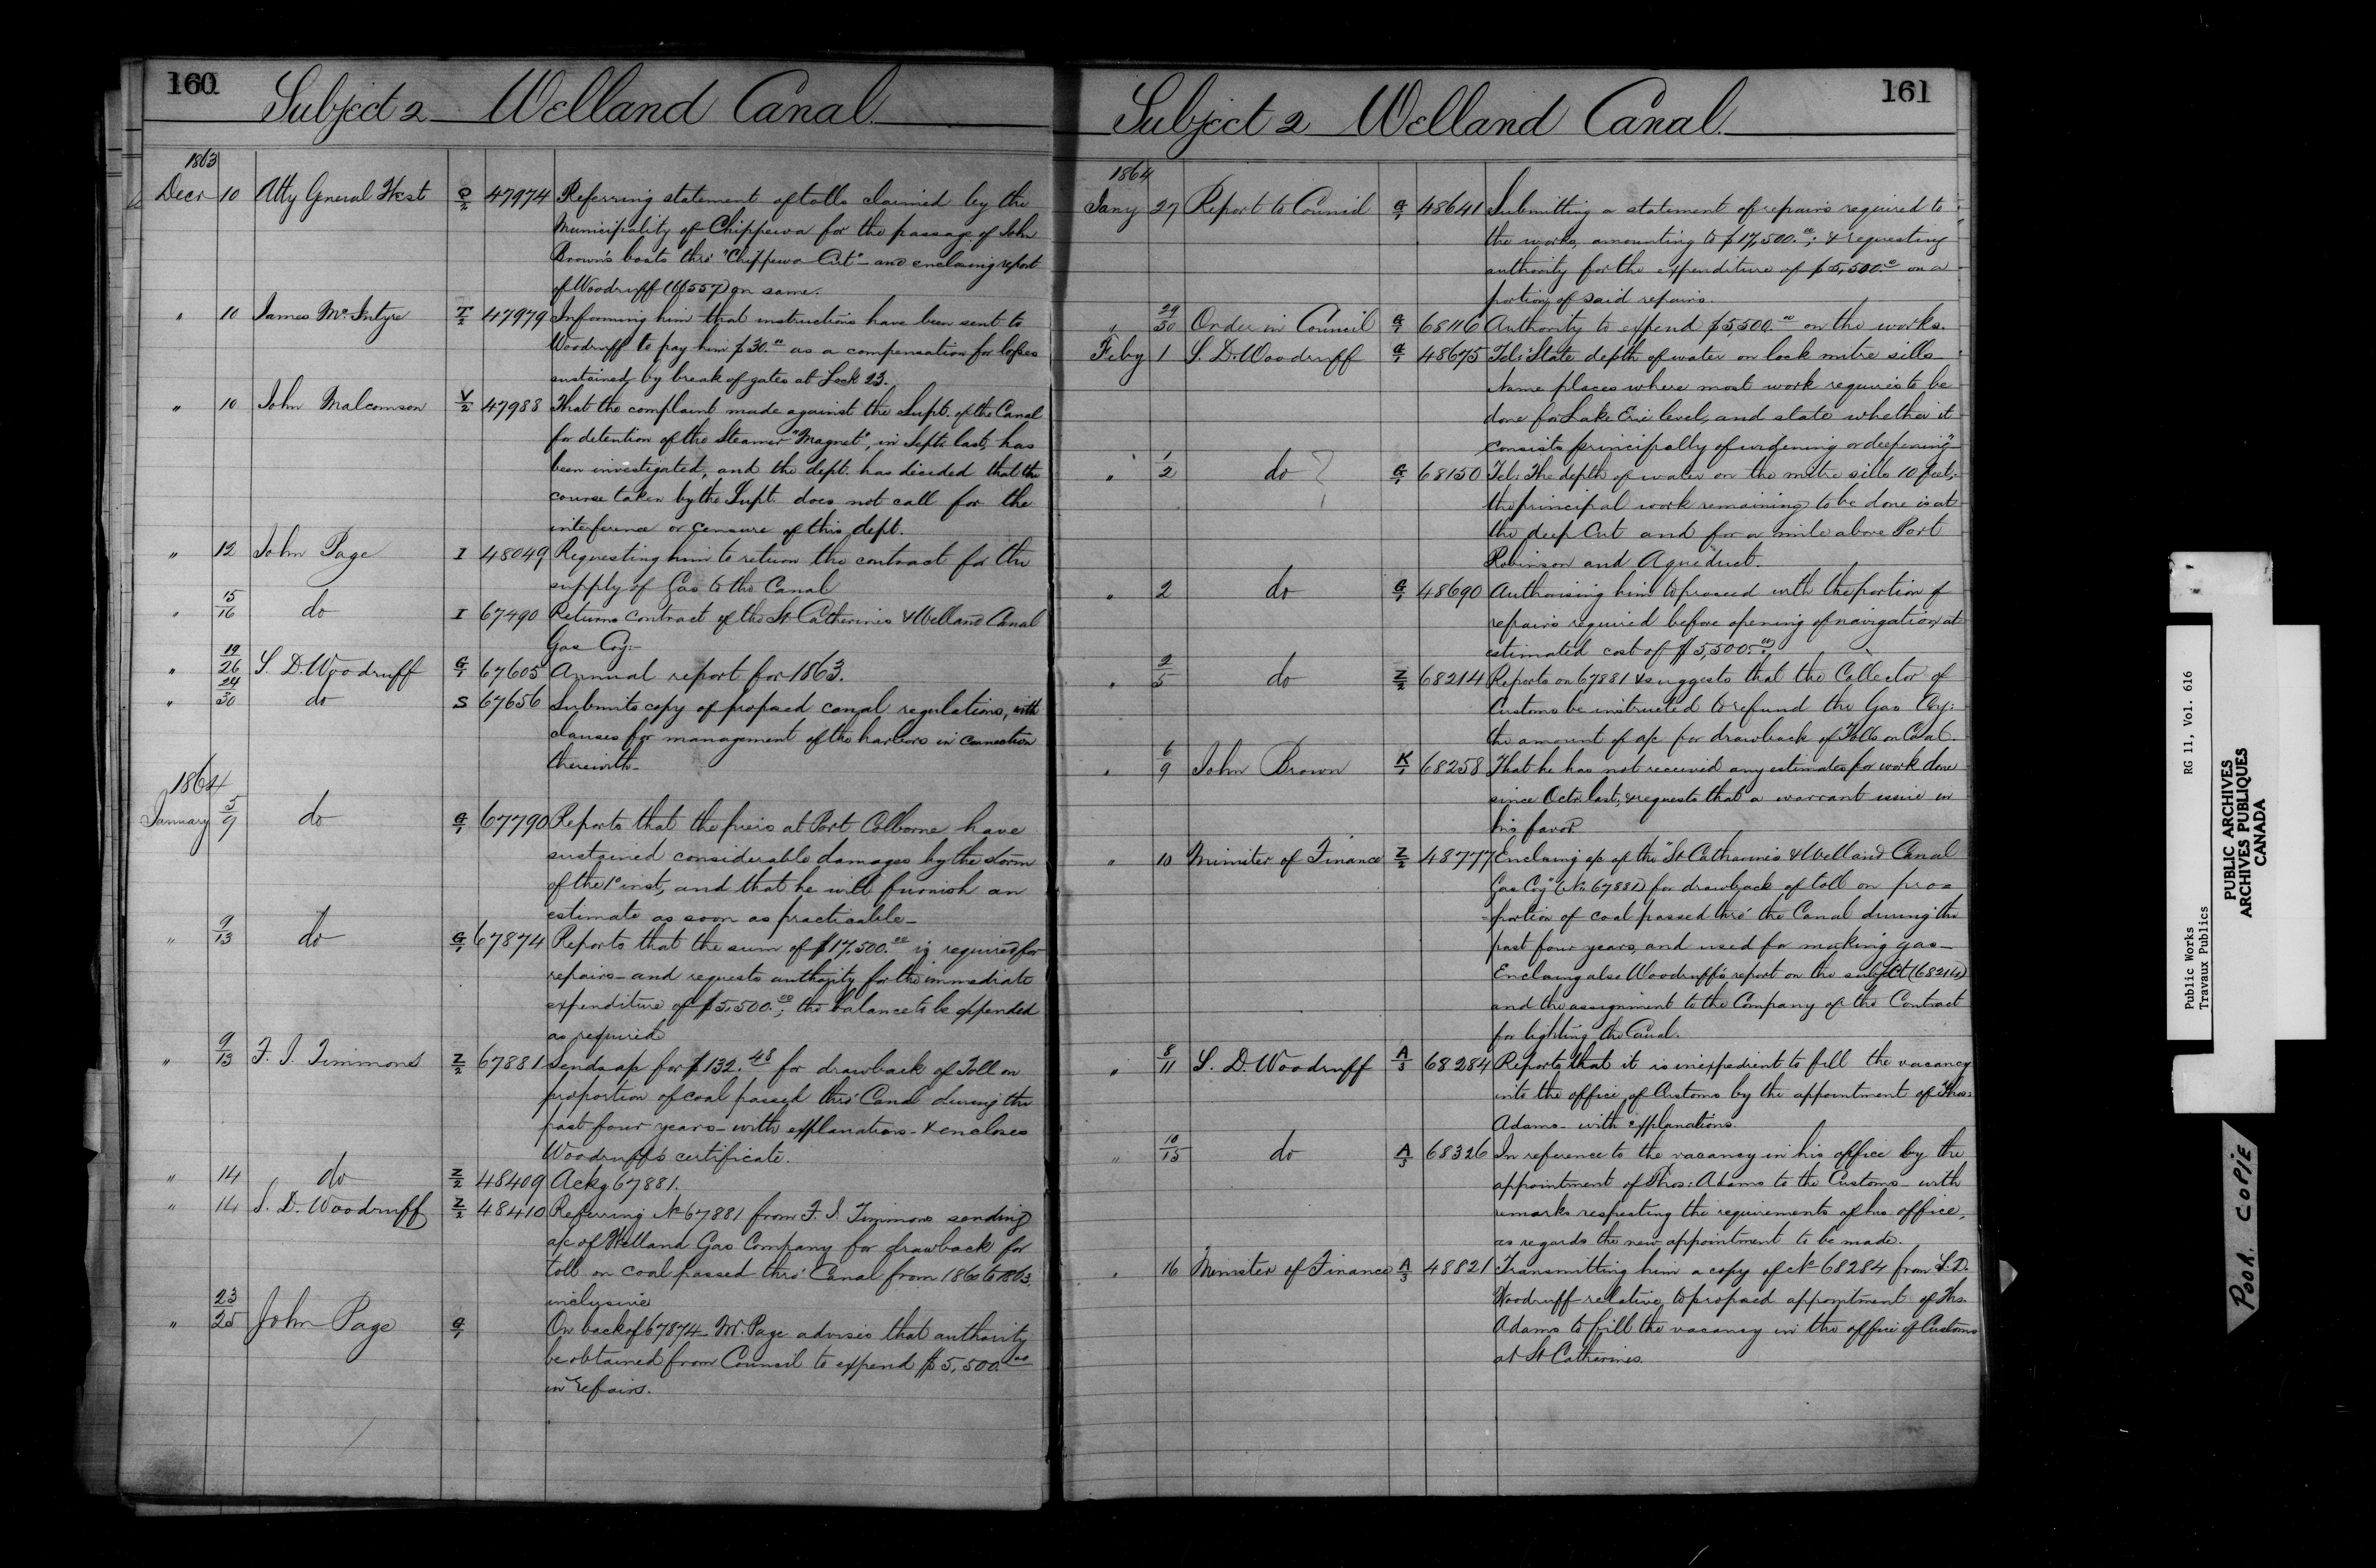 160
Subject 2 Welland Canal
1863
Decr 10 Atty General West Q/2 47974 Referring statement of tolls claimed by the
Municipality of Chippewa for the passage of John
Brown's boats thro' "Chippewa Cut" - and enclosing report
of Woodruff on same.
" 10 James McIntyre T/2 47979 Informing him that instructions have been sent to
Woodruff to pay him $30.00 as a compensation for losses
sustained by break of gates at Lock 23.
" 10 John Malcomson V/2 47988 That the complaint made against the Supt. of the Canal
for detention of the Steamer "Magnet", in Septr last, has
been investigated, and the dept. has decided that the
course taken by the Supt. does not call for the
interference or censure of this dept.
" 12 John Page I 48049 Requesting him to return the contract for the
supply of Gas to the Canal
" 15/16 do I 67490 Returns contract of the St Catherines & Welland Canal
Gas Coy:-
" 19/26 S. D. Woodruff G/1 67605 Annual report for 1863.
" 24/30 do S 67656 Submits copy of proposed canal regulations, with
clauses for management of the harbors in connection
therewith -
1864
January 5/9 do G/1 67790 Reports that the piers at Port Colborne have
sustained considerable damages by the storm
of the 1st inst, and that he will furnish an
estimate as soon as practicable -
" 9/13 do G/1 67874 Reports that the sum of $17,500.00 is required for
repairs - and requests authority for the immediate
expenditure of $5,500.00; the balance to be expended
as required
" 9/13 F. J. Timmons Z/2 67881 Sends a/c for $132.48 for drawback of Toll on
proportion of coal passed thro' Canal during the
past four years - with explanations - & encloses
Woodruff's certificate.
" 14 do Z/2 48409 Ackg 67881.
" 14 S. D. Woodruff Z/2 48410 Referring No 67881 from F. J. Timmons sending
a/c of Welland Gas Company for drawback for
toll on coal passed thro' Canal from 1860 to 1863
inclusive
" 23/25 John Page G/1 On back of 67874 - Mr. Page advises that authority
be obtained from Council to expend $5,500.00
in repairs.
161
Subject 2 Welland Canal
1864
Jany 27 Report to Council G/1 48641 Submitting a statement of repairs required to
the works, amounting to $17,500.00; & requesting
authority for the expenditure of $5,500.00 on a
portion of said repairs.
" 29/30 Order in Council G/1 68116 Authority to expend $5,500.00 on the works.
Feby 1 S. D. Woodruff G/1 48675 Tel: "State depth of water on lock mitre sills
Name places where most work requires to be
done for Lake Erie level, and state whether it
consists principally of widening or deepening"
" 1/2 do G/1 68150 Tel: The depth of water on the mitre sills 10 feet;
the principal work remaining to be done is at
the deep Cut and for a mile above Port
Robinson and Aqueduct.
" 2 do G/1 48690 Authorising him to proceed with the portion of
repairs required before opening of navigation, at
estimated cost of $5,500.00
" 2/5 do Z/2 68214 Reports on 67881 & suggests that the Collector of
Customs be instructed to refund the Gas Coy:
the amount of a/c for drawback of Tolls on Coal.
" 6/9 John Brown K/1 68258 That he has not received any estimates for work done
since Octr last, & requests that a warrant issue in
his favor
" 10 Minister of Finance Z/2 48777 Enclosing a/c of the "St Catharines & Welland Canal
Gas Coy" (No 67881) for drawback of toll on pro=
=portion of coal passed thro' the Canal during the
past four years, and used for making gas -
Enclosing also Woodruff's report on the subject (68214)
and the assignment to the Company of the Contract
for lighting the Canal.
" 8/11 S. D. Woodruff A/3 68284 Reports that it is inexpedient to fill the vacancy
into the office of Customs by the appointment of Thos:
Adams - with explanations.
" 10/15 do A/3 68326 In reference to the vacancy in his office by the
appointment of Thos: Adams to the Customs - with
remarks respecting the requirements of his office,
as regards the new appointment to be made.
" 16 Minister of Finance A/3 48821 Transmitting him a copy of No 68284 from S. D.
Woodruff relative to proposed appointment of Thos.
Adams to fill the vacancy in the office of Customs
at St Catherines.
Public Works RG 11, Vol. 616
Travaux Publics
PUBLIC ARCHIVES
ARCHIVES PUBLIQUES
CANADA
POOR COPIE